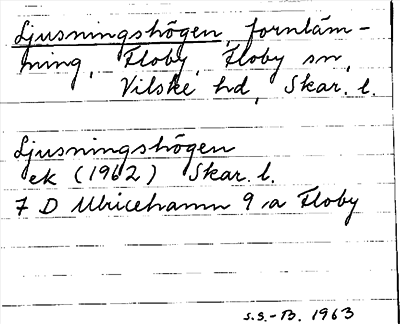 Ljusningshögen, fornläm-
ning, Floby, Floby sn,
Vilske hd, Skar. l.
Ljusningshögen
ek (1962) Skar. l.
7 D Ulricehamn 9 a Floby
S.S.-B. 1963